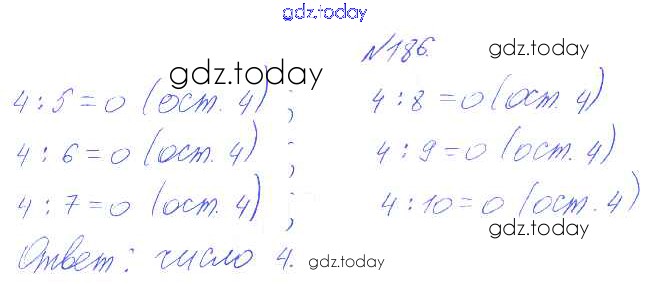 gdz.today
№186. gdz.today
gdz.today
4 : 5 = 0 (ост. 4) ; 4 : 8 = 0 (ост. 4)
4 : 6 = 0 (ост. 4) ; 4 : 9 = 0 (ост. 4)
4 : 7 = 0 (ост. 4) ; 4 : 10 = 0 (ост. 4)
gdz.today
Ответ: число 4. gdz.today